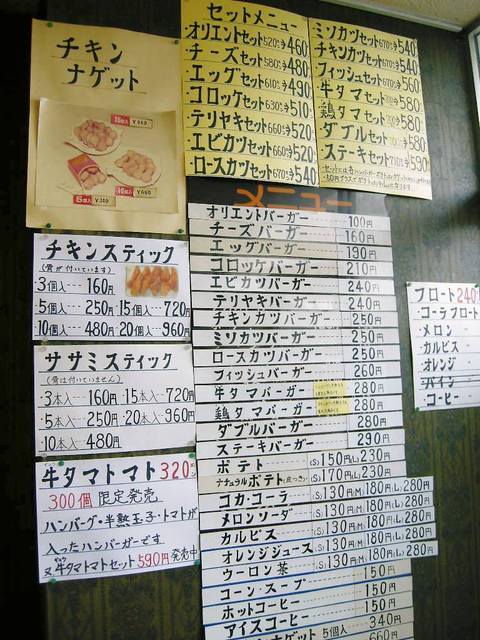 チキン
ナゲット
セットメニュー
オリエントセット520を460
チーズセット580を480
エッグセット610を490
コロッケセット630を510
テリヤキセット660を520
エビカツセット660を520
ロースカツセット670を540
ミソカツセット670を540
チキンカツセット670を540
フィッシュセット670を560
牛タマセット を580
鶏タマセット を580
ダブルセット を580
ステーキセット を590
メニュー
オリエントバーガー 100円
チーズバーガー 160円
エッグバーガー 190円
コロッケバーガー 210円
エビカツバーガー 240円
テリヤキバーガー 240円
チキンカツバーガー 250円
ミソカツバーガー 250円
ロースカツバーガー 250円
フィッシュバーガー 260円
牛タマバーガー 280円
鶏タマバーガー 280円
ダブルバーガー 280円
ステーキバーガー 290円
ポテト (S)150円(L)230円
ナチュラルポテト (S)170円(L)230円
コカ・コーラ (S)130円(M)180円(L)280円
メロンソーダ (S)130円(M)180円(L)280円
カルピス (S)130円(M)180円(L)280円
オレンジジュース (S)130円(M)180円(L)280円
ウーロン茶 (S)130円(M)180円(L)280円
コーン・スープ 150円
ホットコーヒー 150円
アイスコーヒー 150円
5個入 340円
560円
チキンスティック
(骨が付いています)
3個入 160円
5個入 250円 15個入 720円
10個入 480円 20個入 960円
ササミスティック
(骨は付いていません)
3本入 160円 15本入 720円
5本入 250円 20本入 960円
10本入 480円
牛タマトマト 320円
300個 限定発売
ハンバーグ・半熟玉子・トマトが
入ったハンバーガーです
又牛タマトマトセット 590円 発売中
フロート240
・コーラフロート
・メロン
・カルピス
・オレンジ
・パイン
・コーヒー